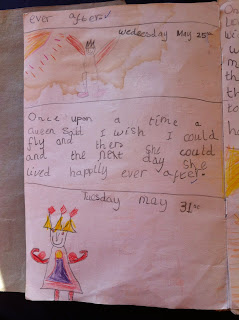 ever after.
Wednesday May 25th
Once upon a time a
Queen said I wish I could
fly and then she could
and the next day she
lived happily ever after.
Tuesday may 31st